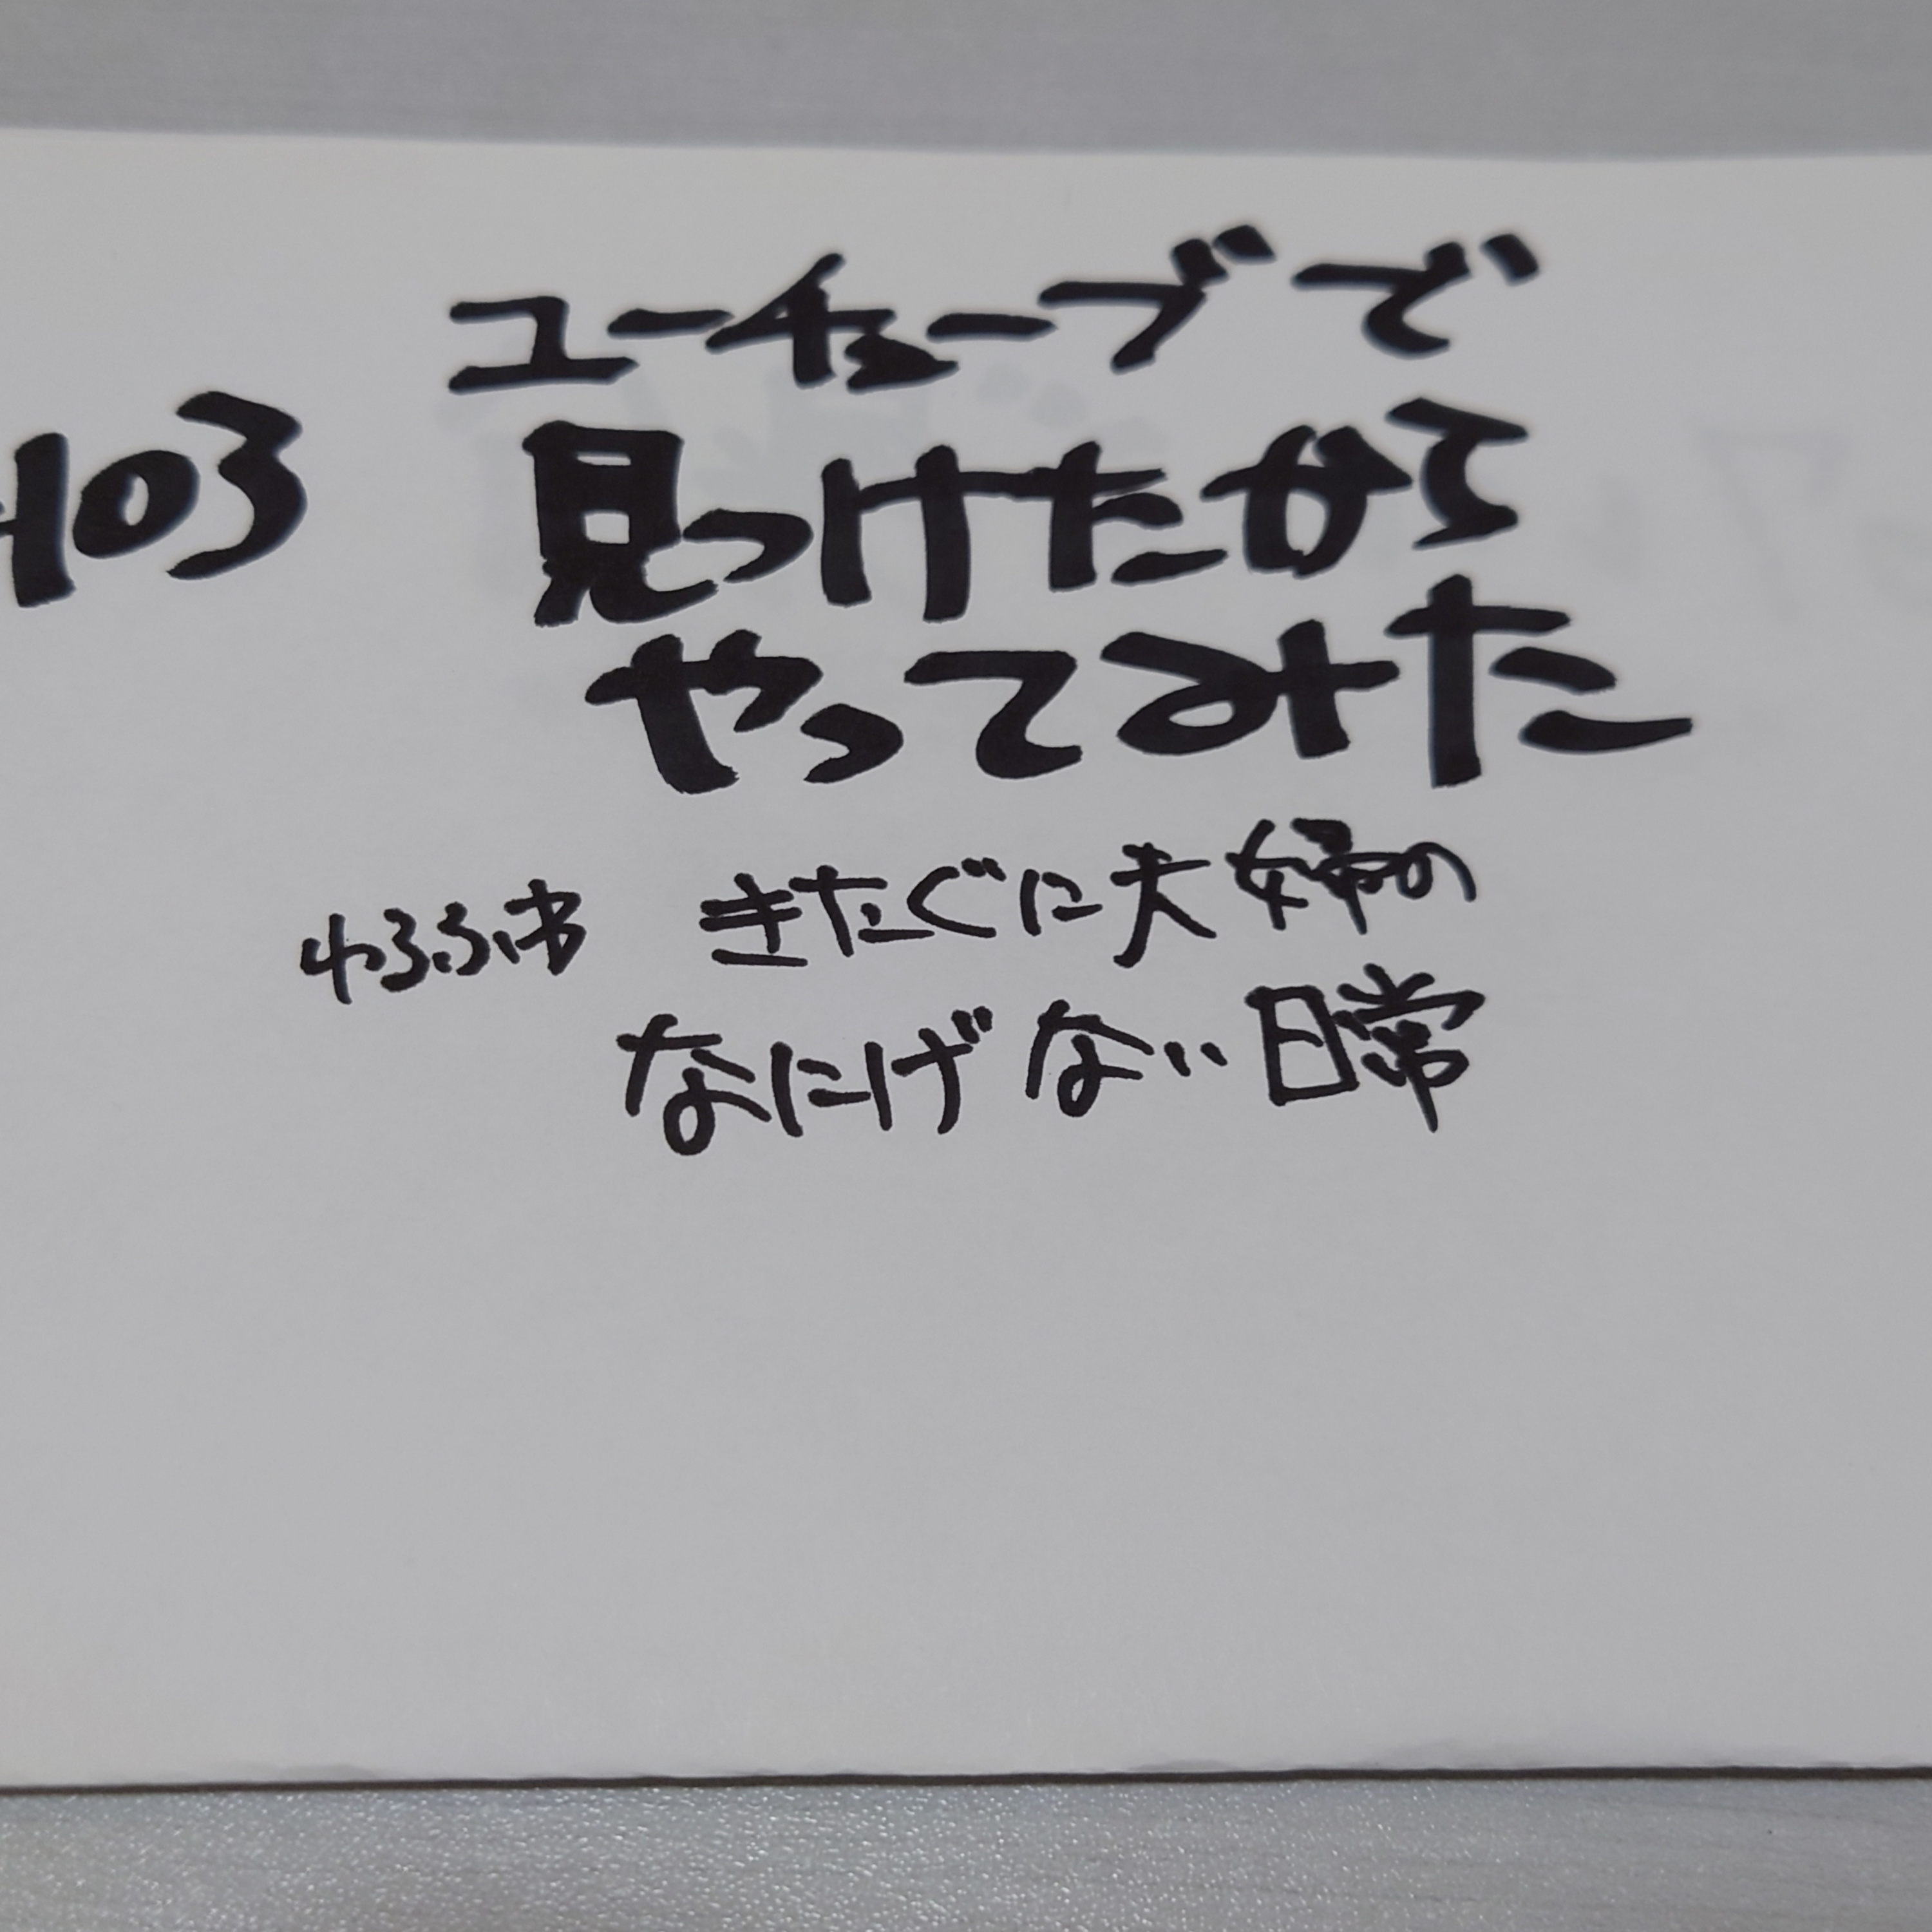 103 ユーチューブで
見つけたから
やってみた
きたぐに夫婦の
なにげない日常